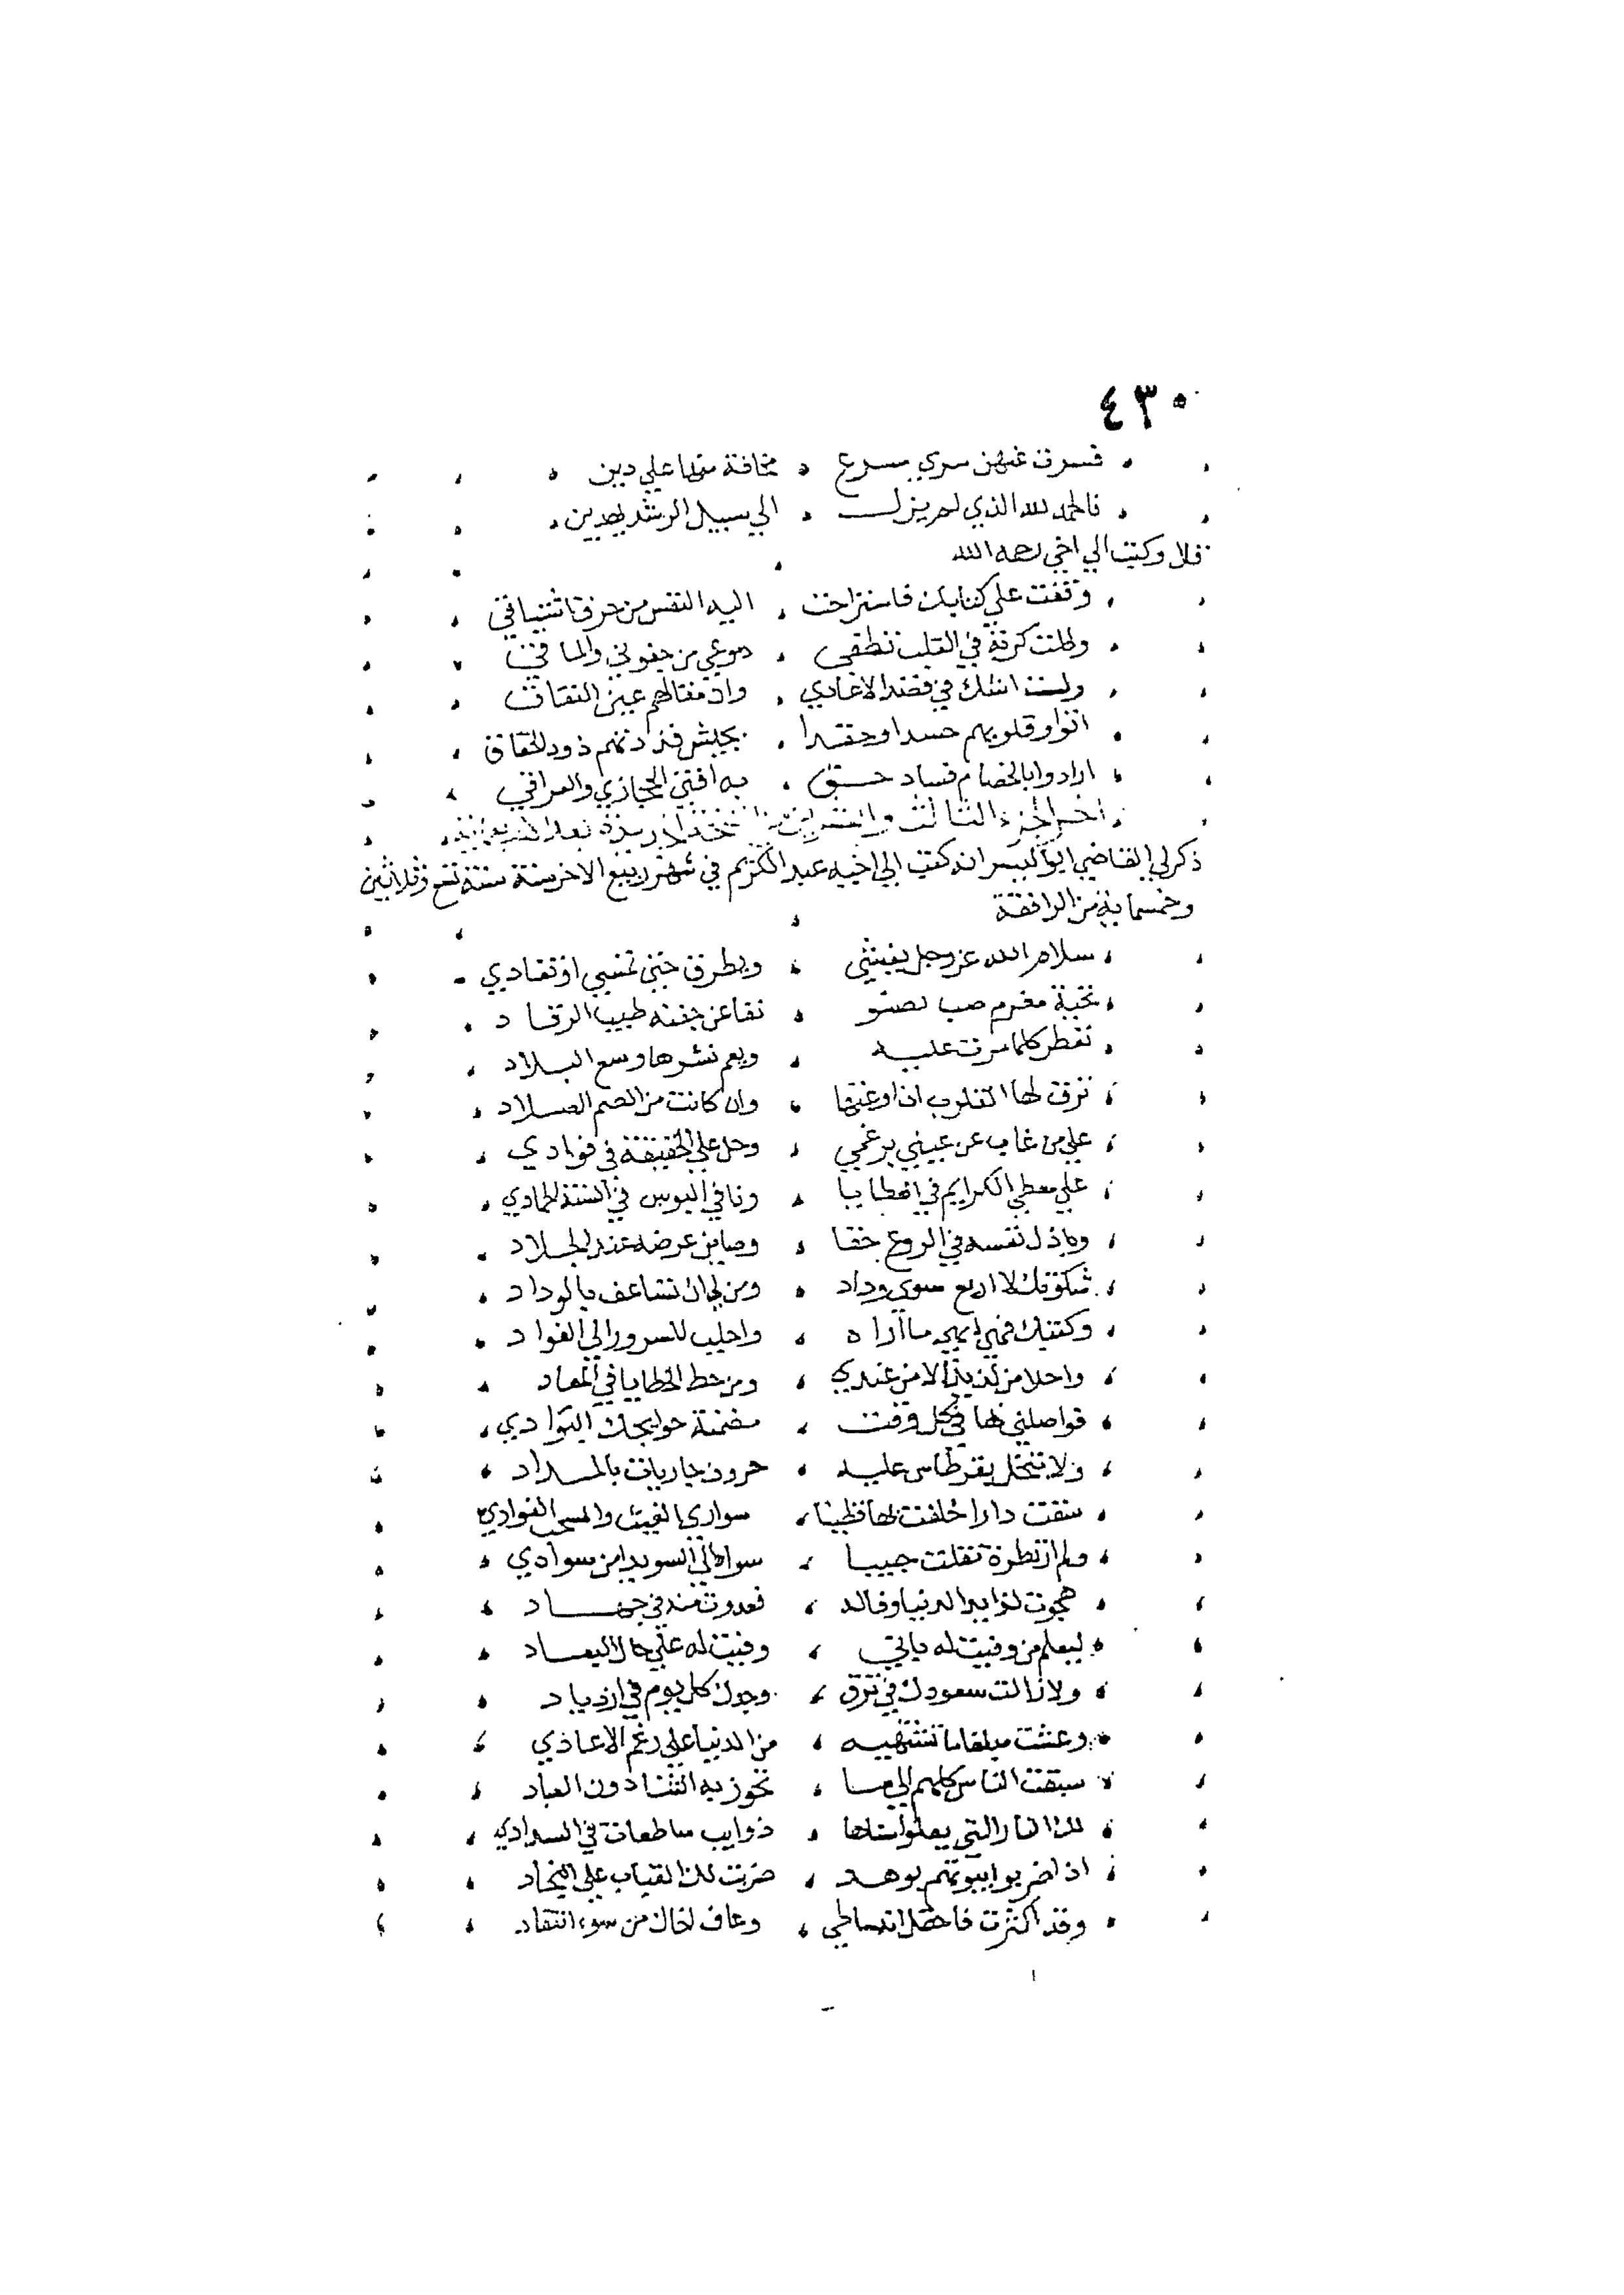 ٤٣٠
فسرت عنهن سري مسرع مخافة منها علي دين
فالحمد لله الذي لم يزل الي سبيل الرشد يهدين
قال وكتب الي اخي رحمه الله
وقفت علي كتابك فاستراحت اليه النفس من حرق اشتياقي
وظلت كربة في القلب تطفي دموعي من جفوني والماقي
ولست اشك في قصد الاعادي وان مقالهم عين النفاق
اتوا وقلوبهم حسدا وحقدا بجيش فزدتهم ذود الحقاق
ارادوا بالخصام فساد حق به افتي الحجازي والعراقي
اخر الجزء الثالث والعشرين بعد
ذكر لي القاضي ابو اليسر انه كتب الي اخيه عبد الكريم في شهر ربيع الاخر سنة سنة تسع وثلاثين
وخمسماية من الرافقة
سلام الله عز وجل يغشي ويطرق حين تمسي او تغادي
تحية مغرم صب نفا عن جفنه طيب الرقاد
تعطر كلما مرت عليه ويعم نشرها وسع البلاد
ترق لها القلوب اذا وعتها وان كانت من الصم الصلاد
علي من غاب عن عيني برغمي وحل علي الحقيقة في فوادي
علي معطي الكرايم في العطايا ونافي البوس في السنة الجماد
وباذل نفسه في الروع حقا وصاين عرضه عند الجلاد
شكوتك لا اريع سوي وداد ومن لي ان تساعف بالوداد
وكتبك فهي ابهج ما اراه واجلب للسرور الي الفواد
واحلا من لذيذ الامن عندي ومن حط الخطايا في المعاد
فواصلني بها في كل وقت مضمنة حوايجك البوادي
ولا تبخل بقرطاس عليه حروف جاريات بالمداد
سقت دارا خلقت بها سواري الغيث والسحب الغوادي
ولم از نظرة نقلت حبيبا سواه الي السويدا من سوادي
هجرت لذايذ الدنيا وفالد فعدوت منه في جهاد
ليعلم من وفيت له باني وفيت له علي حال البعاد
ولا زالت سعودك في ترق وجدك كل يوم في ازدياد
وعشت مبلغا ما تشتهيه من الدنيا علي رغم الاعادي
سبقت الناس كلهم الي ما تحوز به الثنا دون العباد
لك النار التي يعلو سناها ذوايب ساطعات في السوادي
اذا ضربوا بيوتهم بوهد ضربت لك القباب علي النجاد
وقد اكثرت فاحتمل انبساطي وعاف اخاك من سوء انتقاد